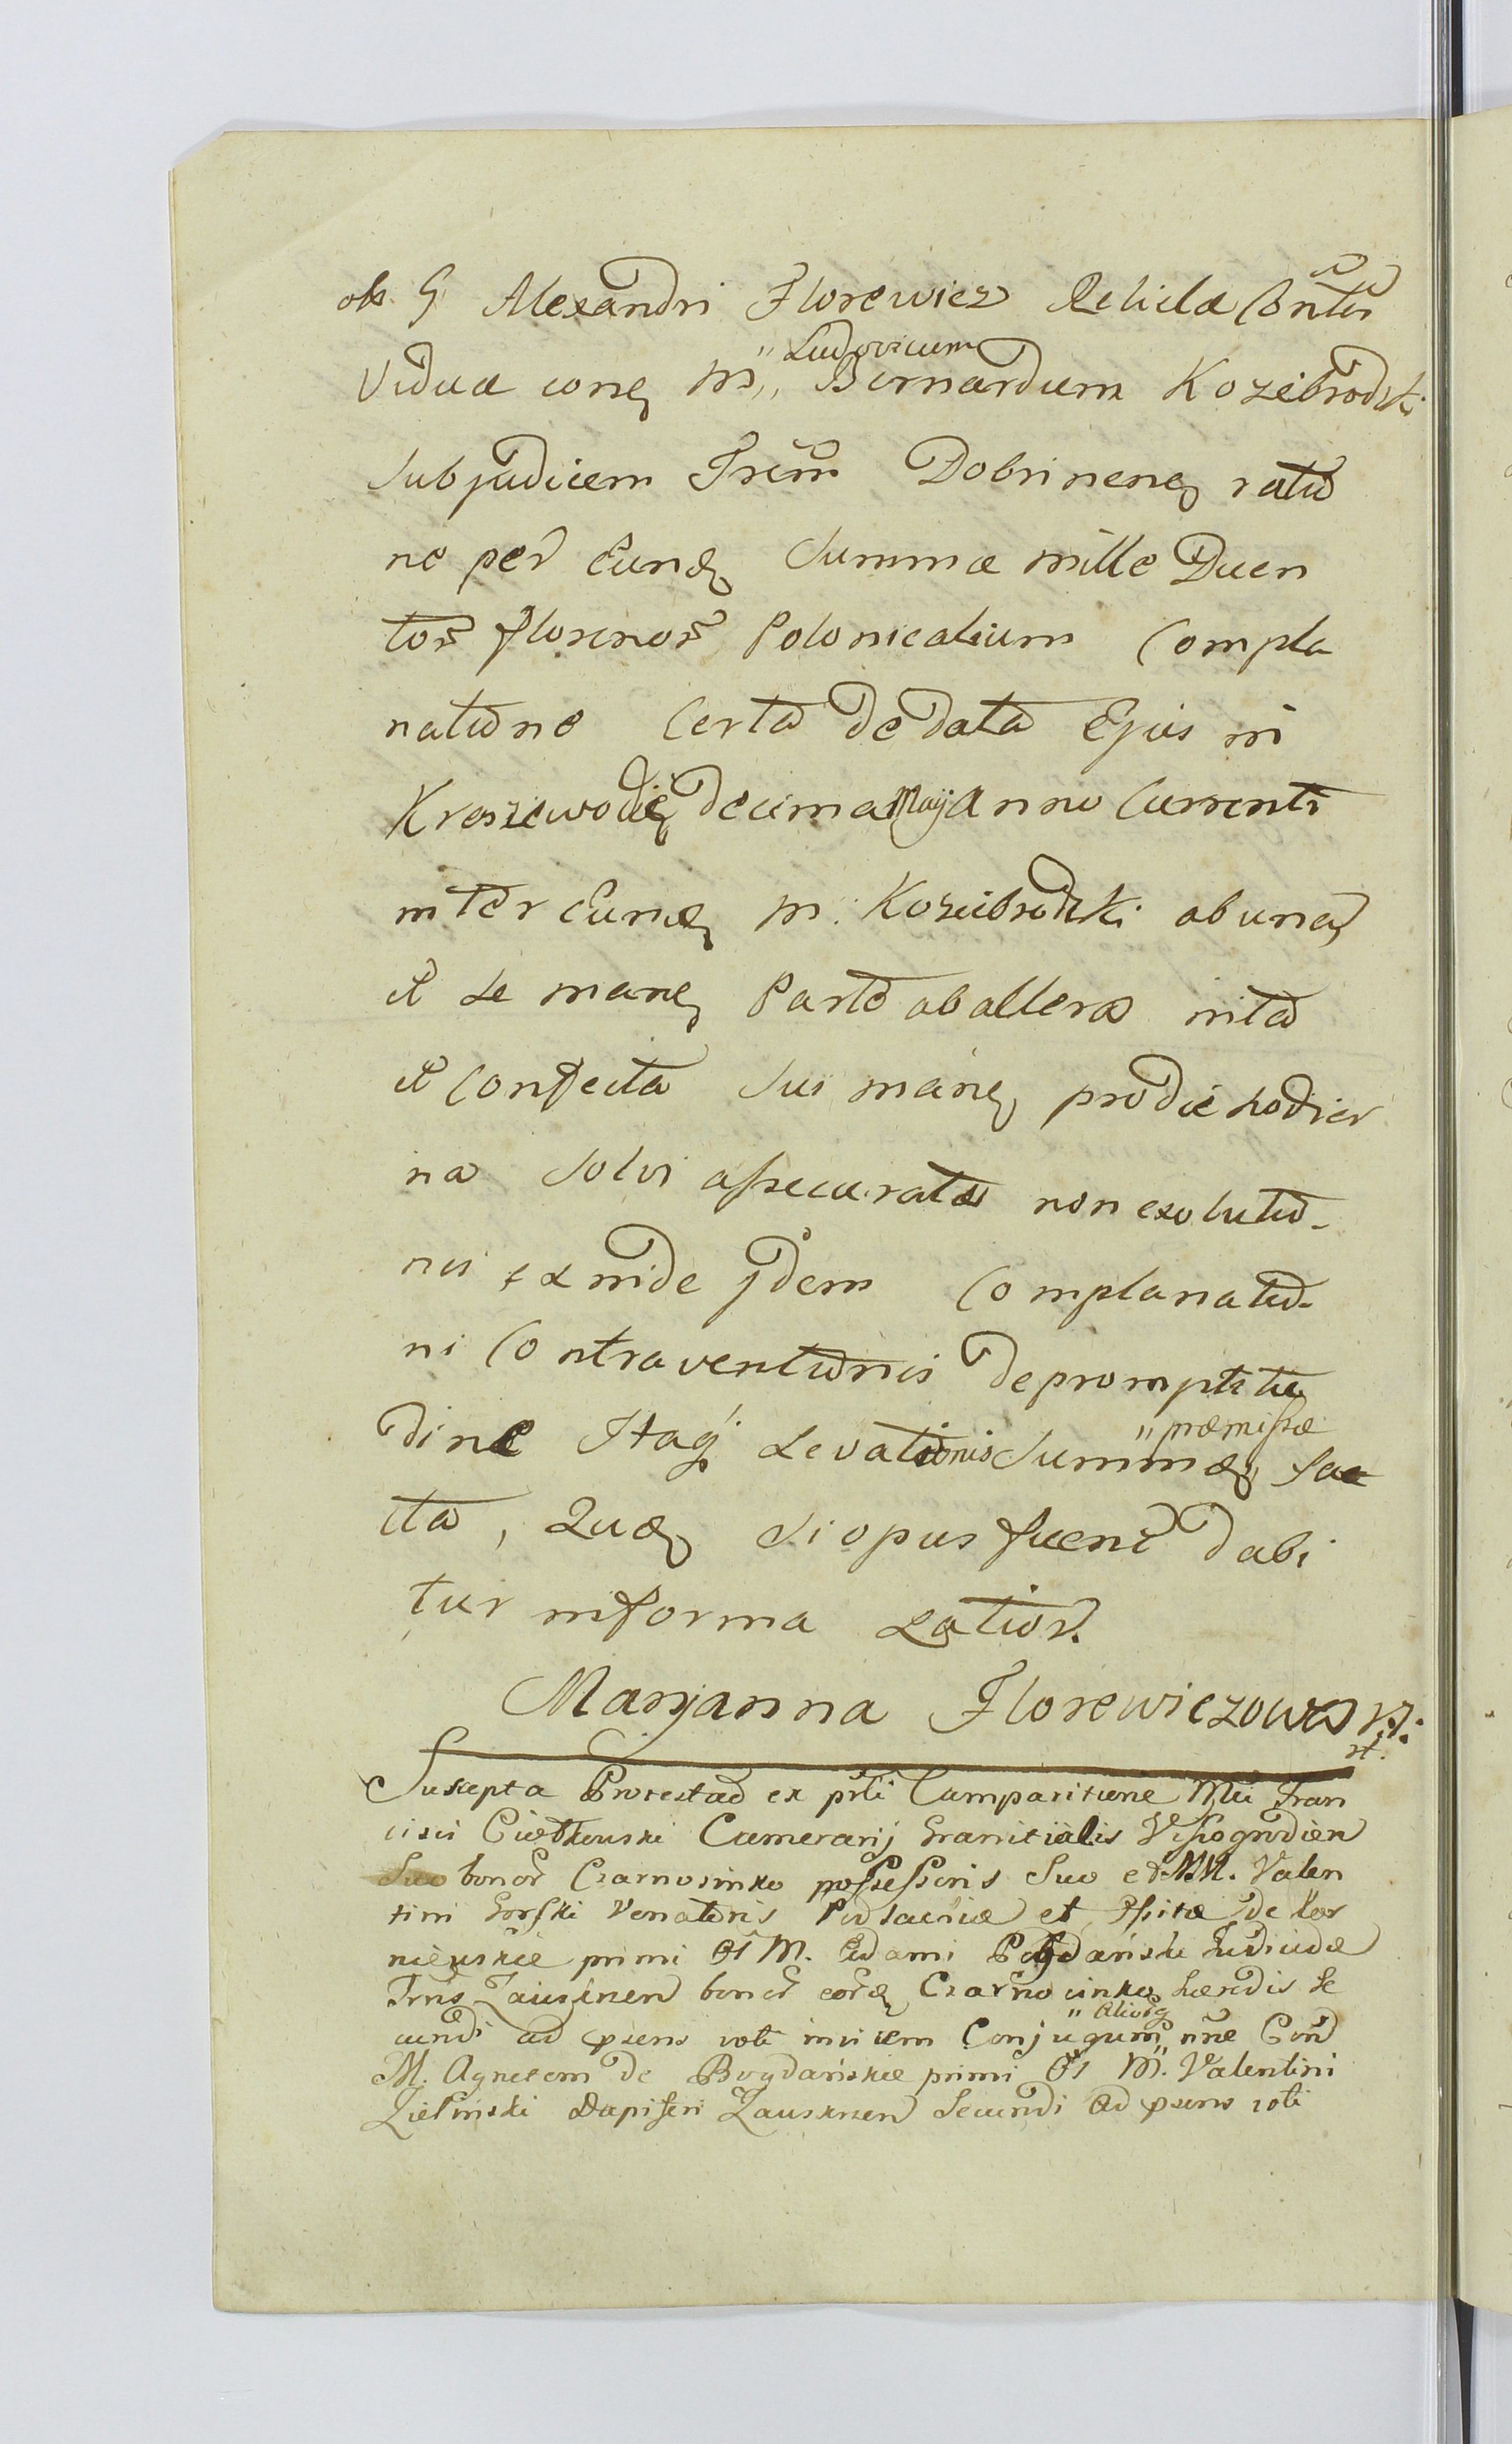 ob G Alexandri Florewicz Relictæ Contor
"Ludovicum
Viduæ conq M,, Bernardum Kozibrodzki
Subjudicem Trēm Dobrinenq ratio
ne per Eundq Summæ mille Ducen
tor̄ florenor̄ Polonicalium Compla
natione Certa de data Ejus in
Kroszewo dieq decima Maij Anno Currenti
inter Eundq M. Kozibrodzki ab una
et se manq Parte ab altera inita
et Confecta sui manq pro die hodier
na Solvi assecuratæ non exolutio-
nis exinde jdem Complanatio-
ni Contraventionis de promptitu
"præmissæ
dine Itaq Levationis Summæ fac
ta, Quæ si opus fuerit dabi
tur in forma Latiori.
Maryanna Florewiczowa
Suscepta Protestao ex prti Comparitione Mci Fran
cisci Cientkowski Camerarij Granitialis Vissogrodien
Suo bonor̄ Czarnocinko possessoris Suo et MM. Valen
tini Gorski Venatoris Podlachiæ et de Kar
niewskie primi M. Adami Bogdański Judicidæ
Trrīs Zawskrnen bonor̄ eordq Czarnocinko hæredis Se
"Aliorq
cundi ad præns voti invicem Conjugum nne Cond
M. Agnetem de Bogdańskie primi M. Valentini
Zieliński Dapiferi Zawskrnen Secundi ad præns voti